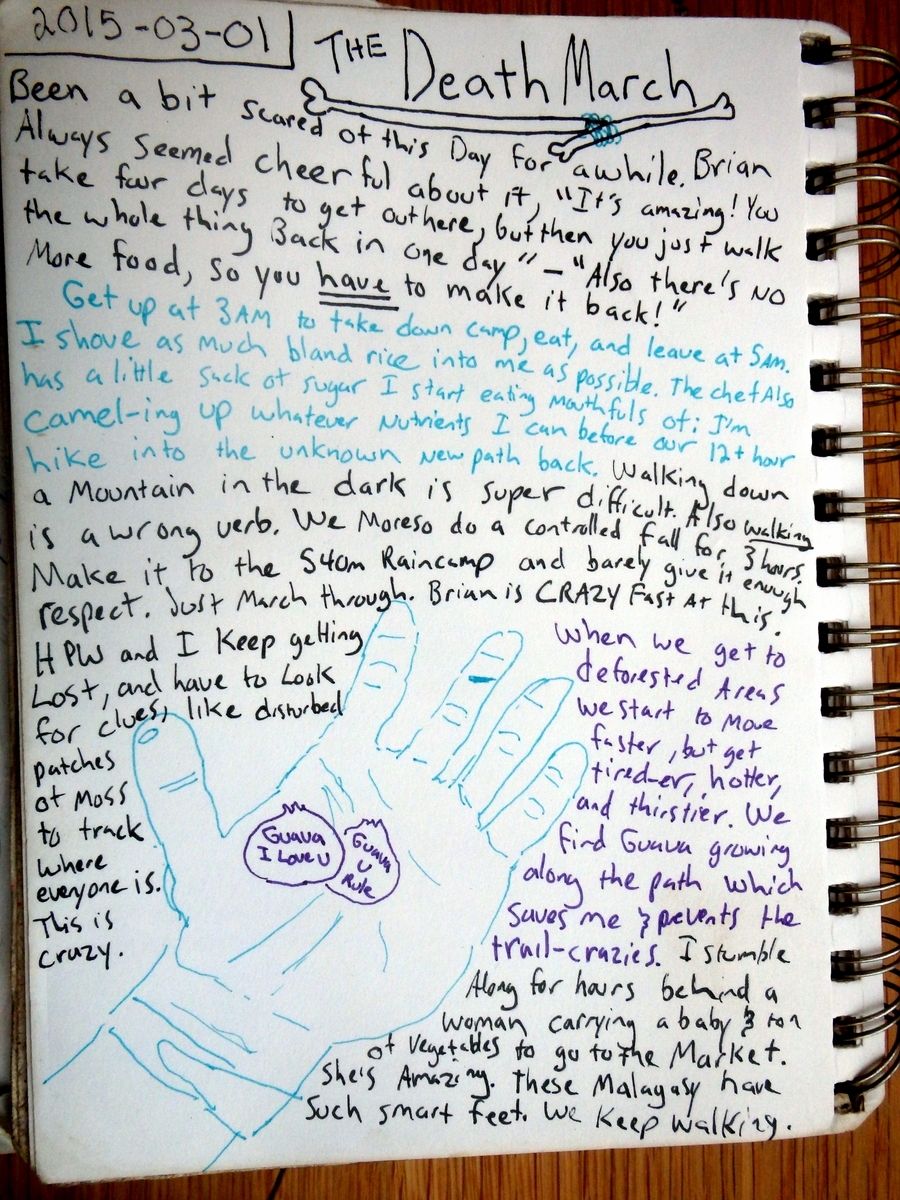 2015-03-01
THE
Death March
Been a bit scared of this Day for awhile. Brian
Always seemed cheerful about it, "It's amazing! You
take four days to get out here, but then you just walk
the whole thing Back in one day" — "Also there's NO
More food, so you have to make it back!"
Get up at 3AM to take down camp, eat, and leave at 5AM.
I shove as much bland rice into me as possible. The chef Also
has a little sack of sugar I start eating mouthfuls of; I'm
Camel-ing up whatever Nutrients I can before our 12+ hour
hike into the unknown new path back. Walking down
a Mountain in the dark is super difficult. Also walking
is a wrong verb. We Moreso do a controlled fall for 3 hours.
Make it to the 540m Raincamp and barely give it enough
respect. Just March through. Brian is CRAZY FAST AT this!
HPW and I Keep getting
Lost, and have to Look
for clues, like disturbed
patches
of Moss
to track
where
everyone is.
This is
crazy.
Guava
I Love U
Guava
U
Rule
When we get to
deforested Areas
we start to Move
faster, but get
tired-er, hotter,
and thirstier. We
find Guava growing
along the path which
saves me & prevents the
trail-crazies. I stumble
Along for hours behind a
woman carrying a baby & ton
of vegetables to go to the Market.
She's Amazing. These Malagasy have
Such smart feet. We keep walking.